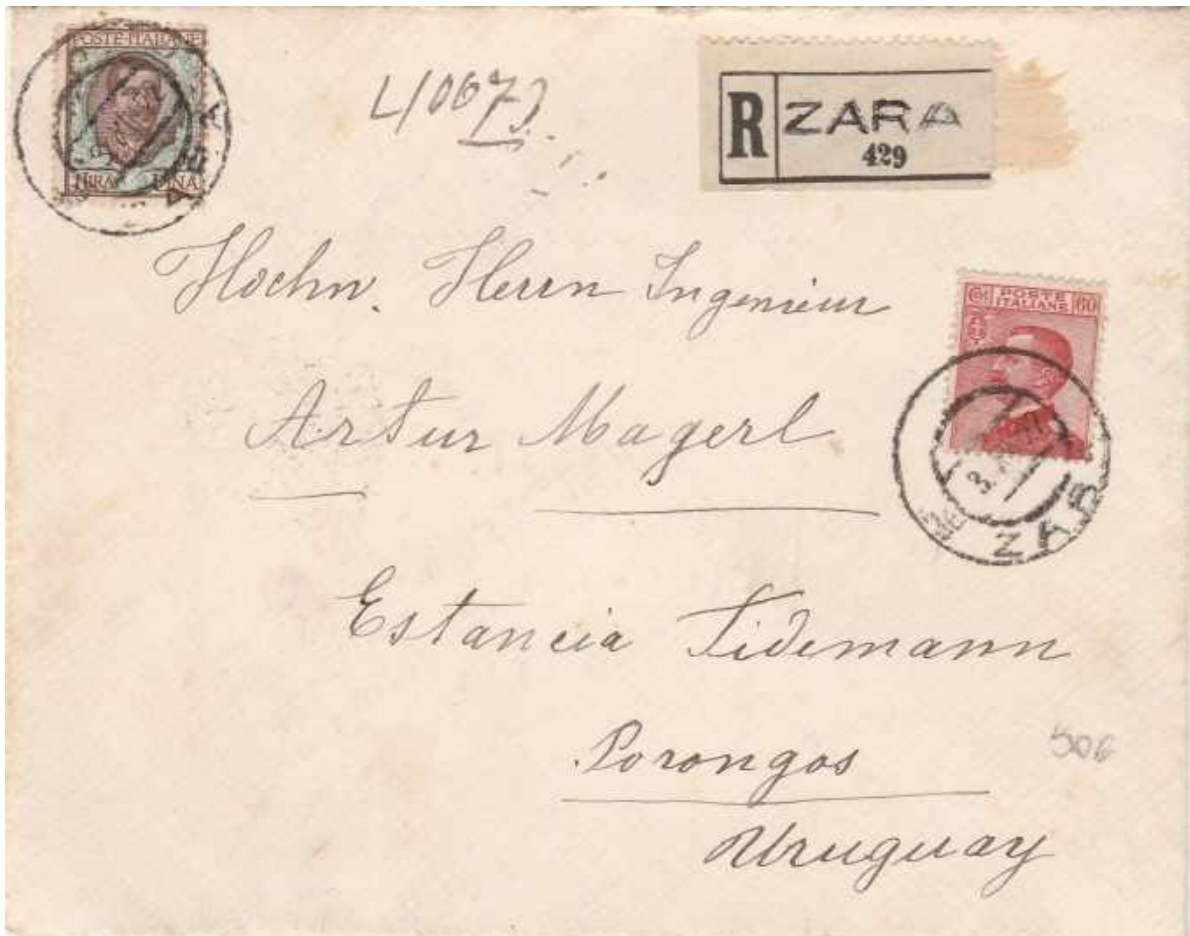 POSTE ITALIANE
LIRA UNA
R ZARA
429
Hochw. Herrn Ingenieur
Cent POSTE 60
ITALIANE
Artur Magerl
ZARA
Estancia Tidemann
Porongos
50€
Uruguay